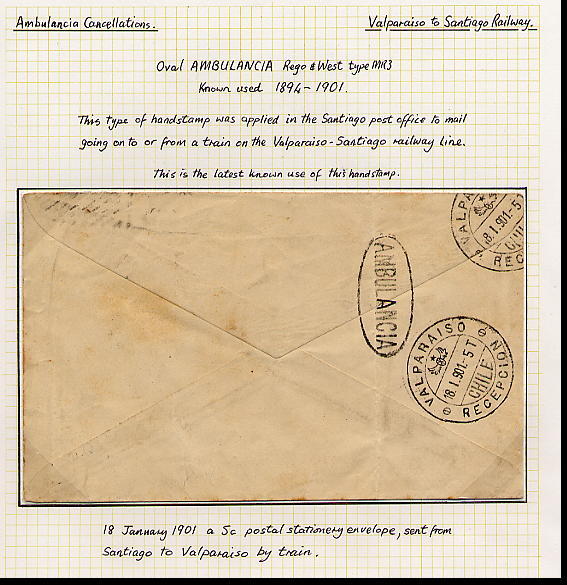 Ambulancia Cancellations.
Valparaiso to Santiago Railway.
Oval AMBULANCIA Rego & West type MR3
Known used 1894-1901.
This type of handstamp was applied in the Santiago post office to mail
going on to or from a train on the Valparaiso-Santiago railway line.
This is the latest known use of this handstamp.
VALPA
18.1.901-5
CHIL
REC
AMBULANCIA
VALPARAISO
18.1.901.-5 T
CHILE
RECEPCION
18 January 1901 a 5c postal stationery envelope, sent from
Santiago to Valparaiso by train.